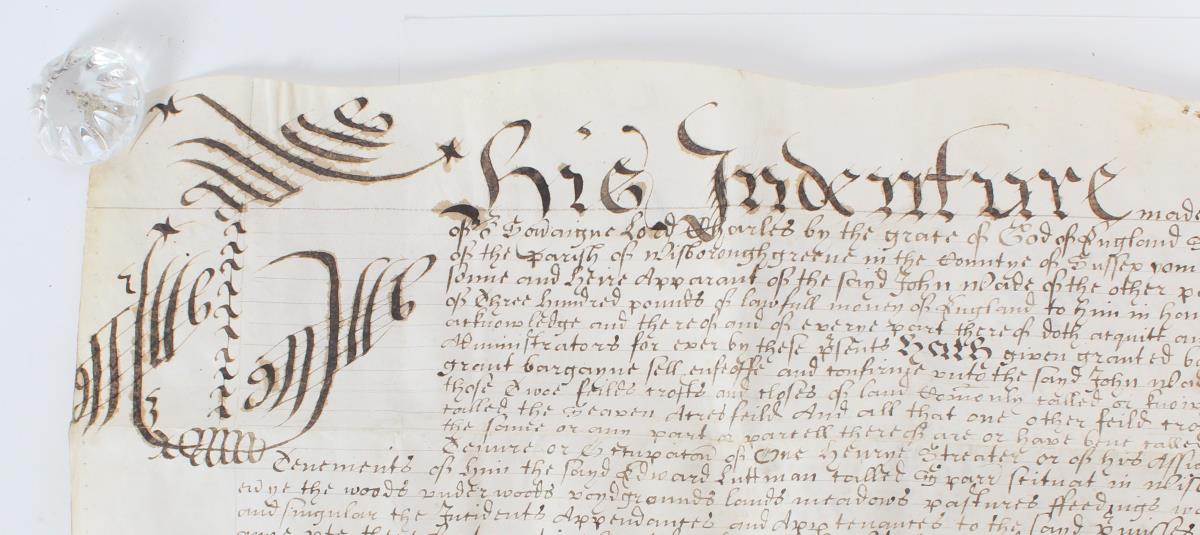 This Indenture made
of o Soveraigne Lord Charles by the grace of God of England
of the Parish of Wisborough greene in the Countye of Sussex yom
sonne and Heire Apparant of the said John Wade of the other p
of Three Hundred pounds of lawfull money of England to him in hon
acknowledge and thereof and of everye part thereof doth acquitt an
Administrators for ever by these psents Hath given granted b
grant bargayne sell enfeoffe and confirme unto the sayd John Wad
those Twoe feilds crofts and closes of land Comonly called or know
called the Seaven Acresfeild And all that one other feild cro
the same or any part or parcell thereof are or have bene called
Tenure or Occupacon of One Henrye Streater or of his Assi
Tenements of him the sayd Edward Luttman called parr scituat in Wis
the woods underwoods voydgrounds lands meadows pastures ffeedings wa
and singular the Incidents Appendances and Apptenances to the sayd Pmisses